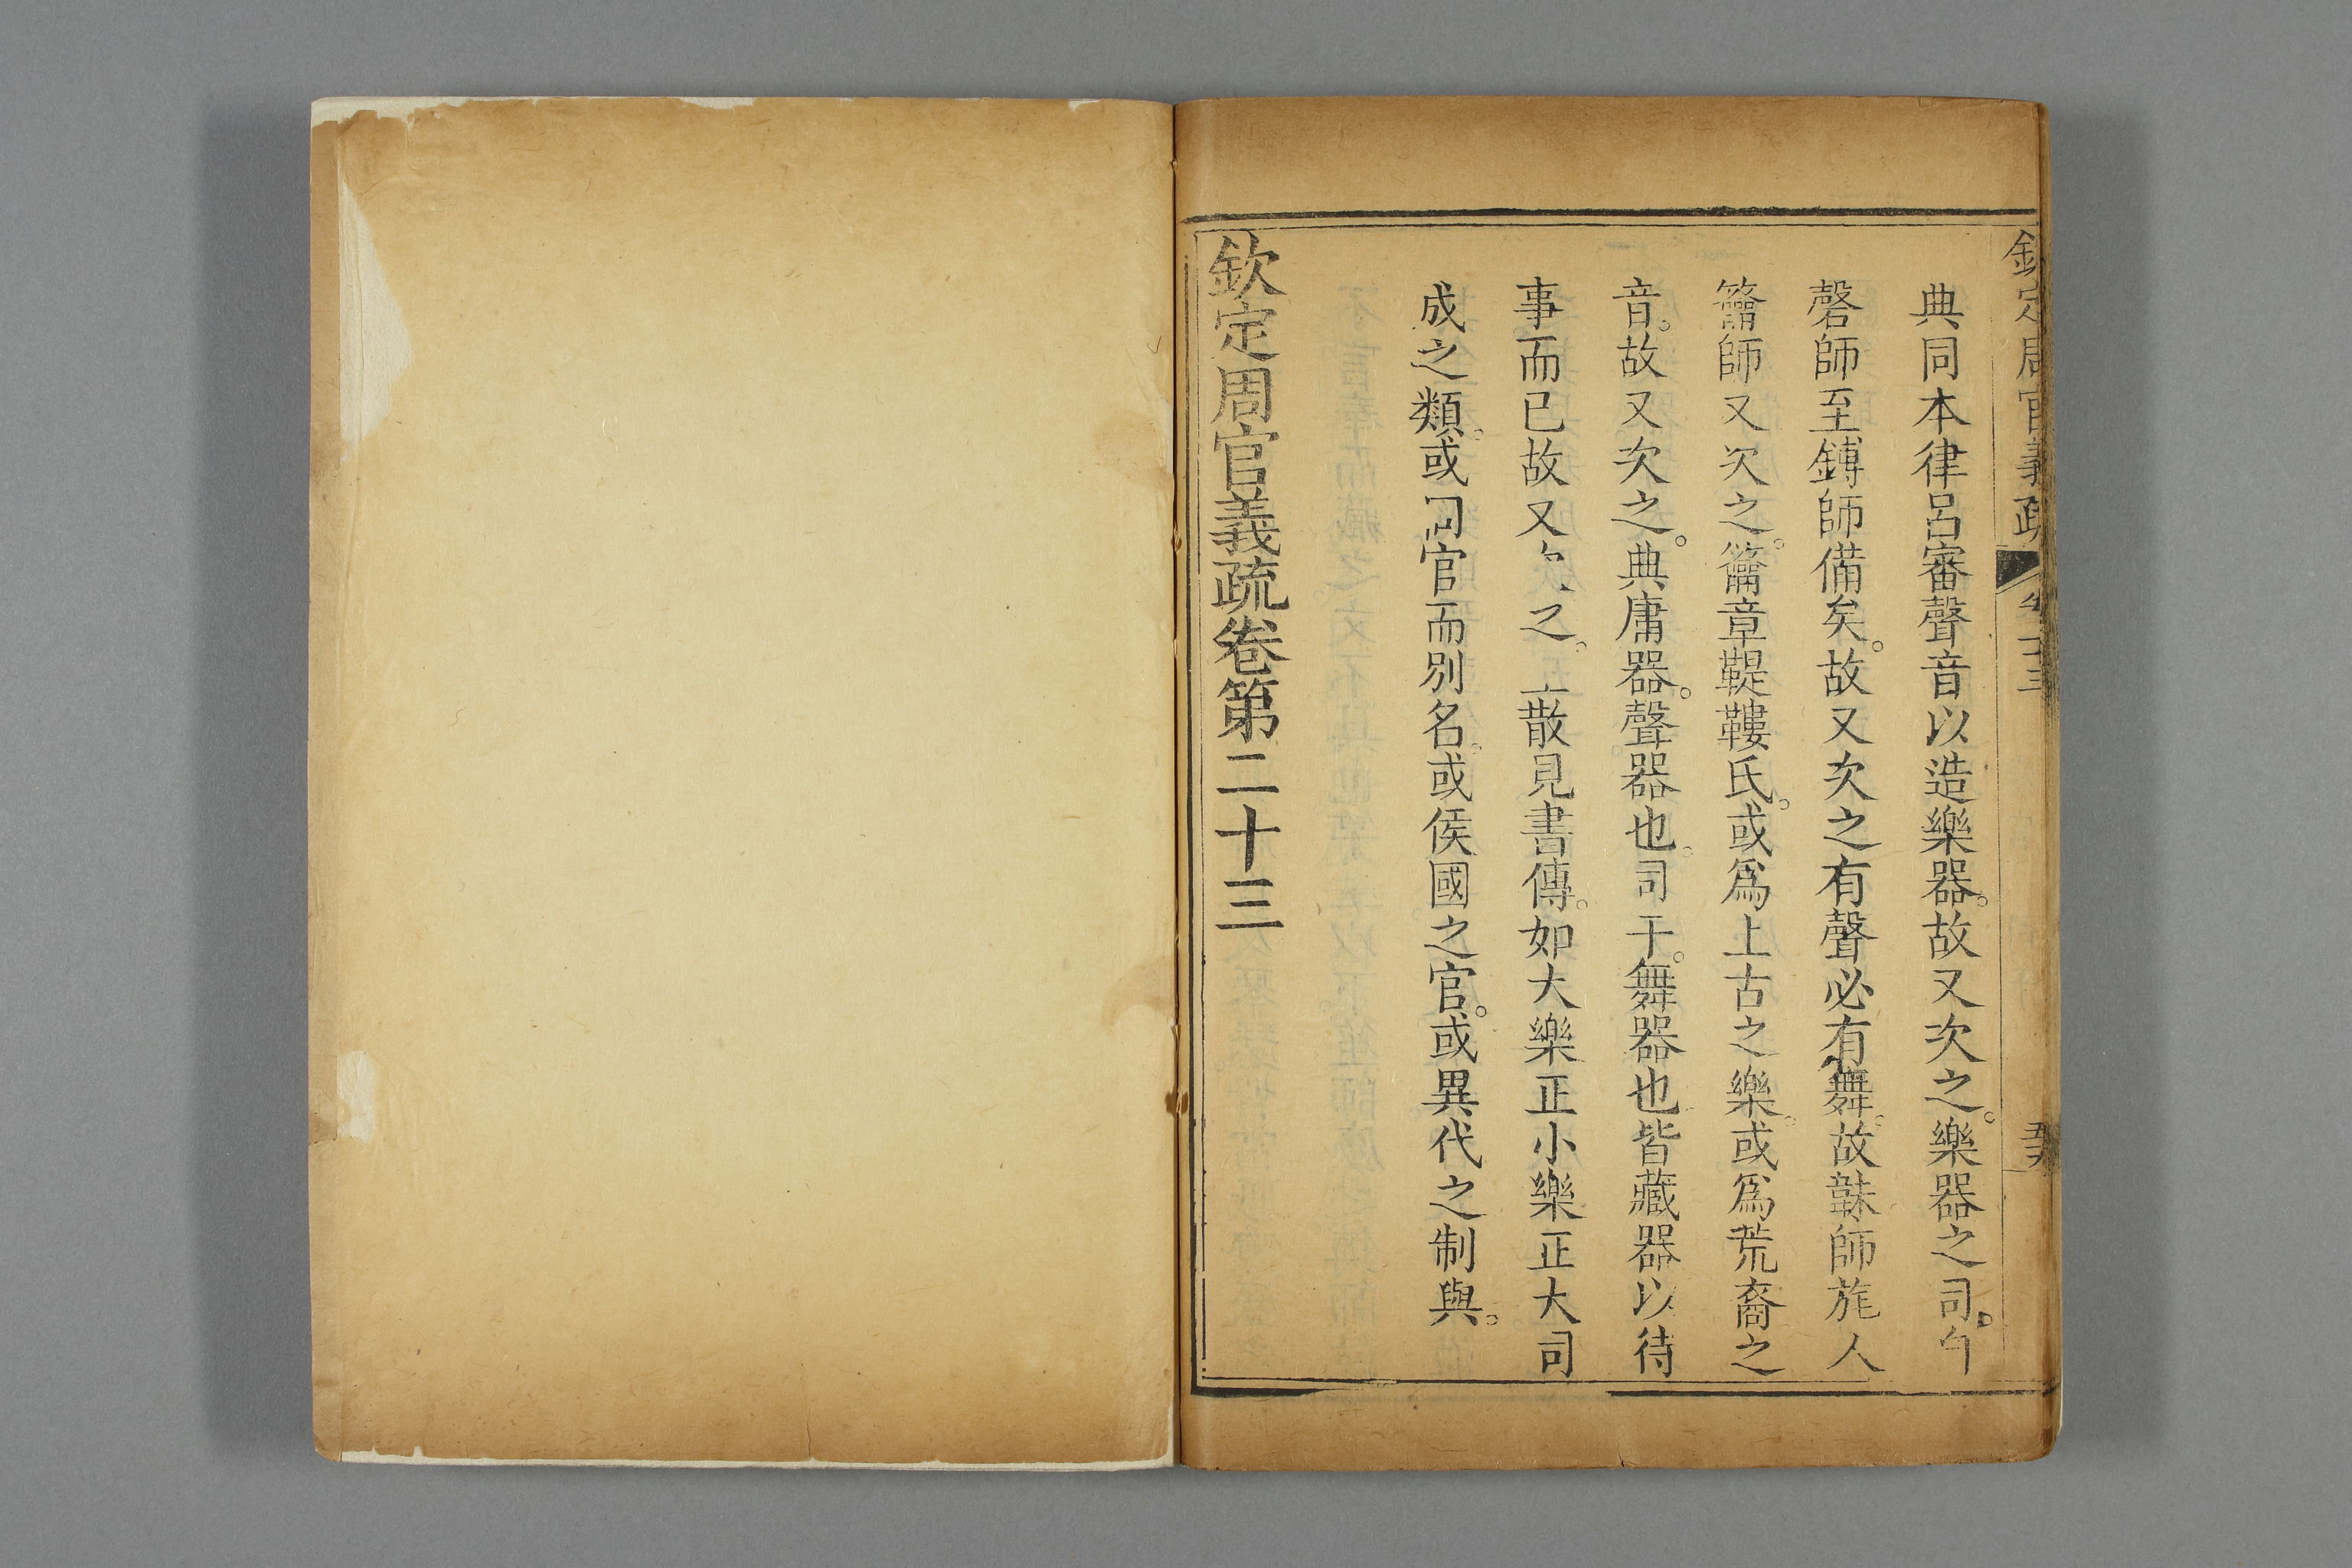 欽定周官義疏 卷二十三
典同本律呂審聲音以造樂器。故又次之。樂器之司。自
磬師至鎛師備矣。故又次之有聲必有舞。故韎師旄人
籥師又次之。籥章鞮鞻氏。或爲上古之樂。或爲荒裔之
音。故又次之。典庸器。聲器也。司干。舞器也。皆藏器以待
事而已故又次之。散見書傳。如大樂正小樂正大司
成之類。或同官而別名。或侯國之官。或異代之制與。
欽定周官義疏卷第二十三